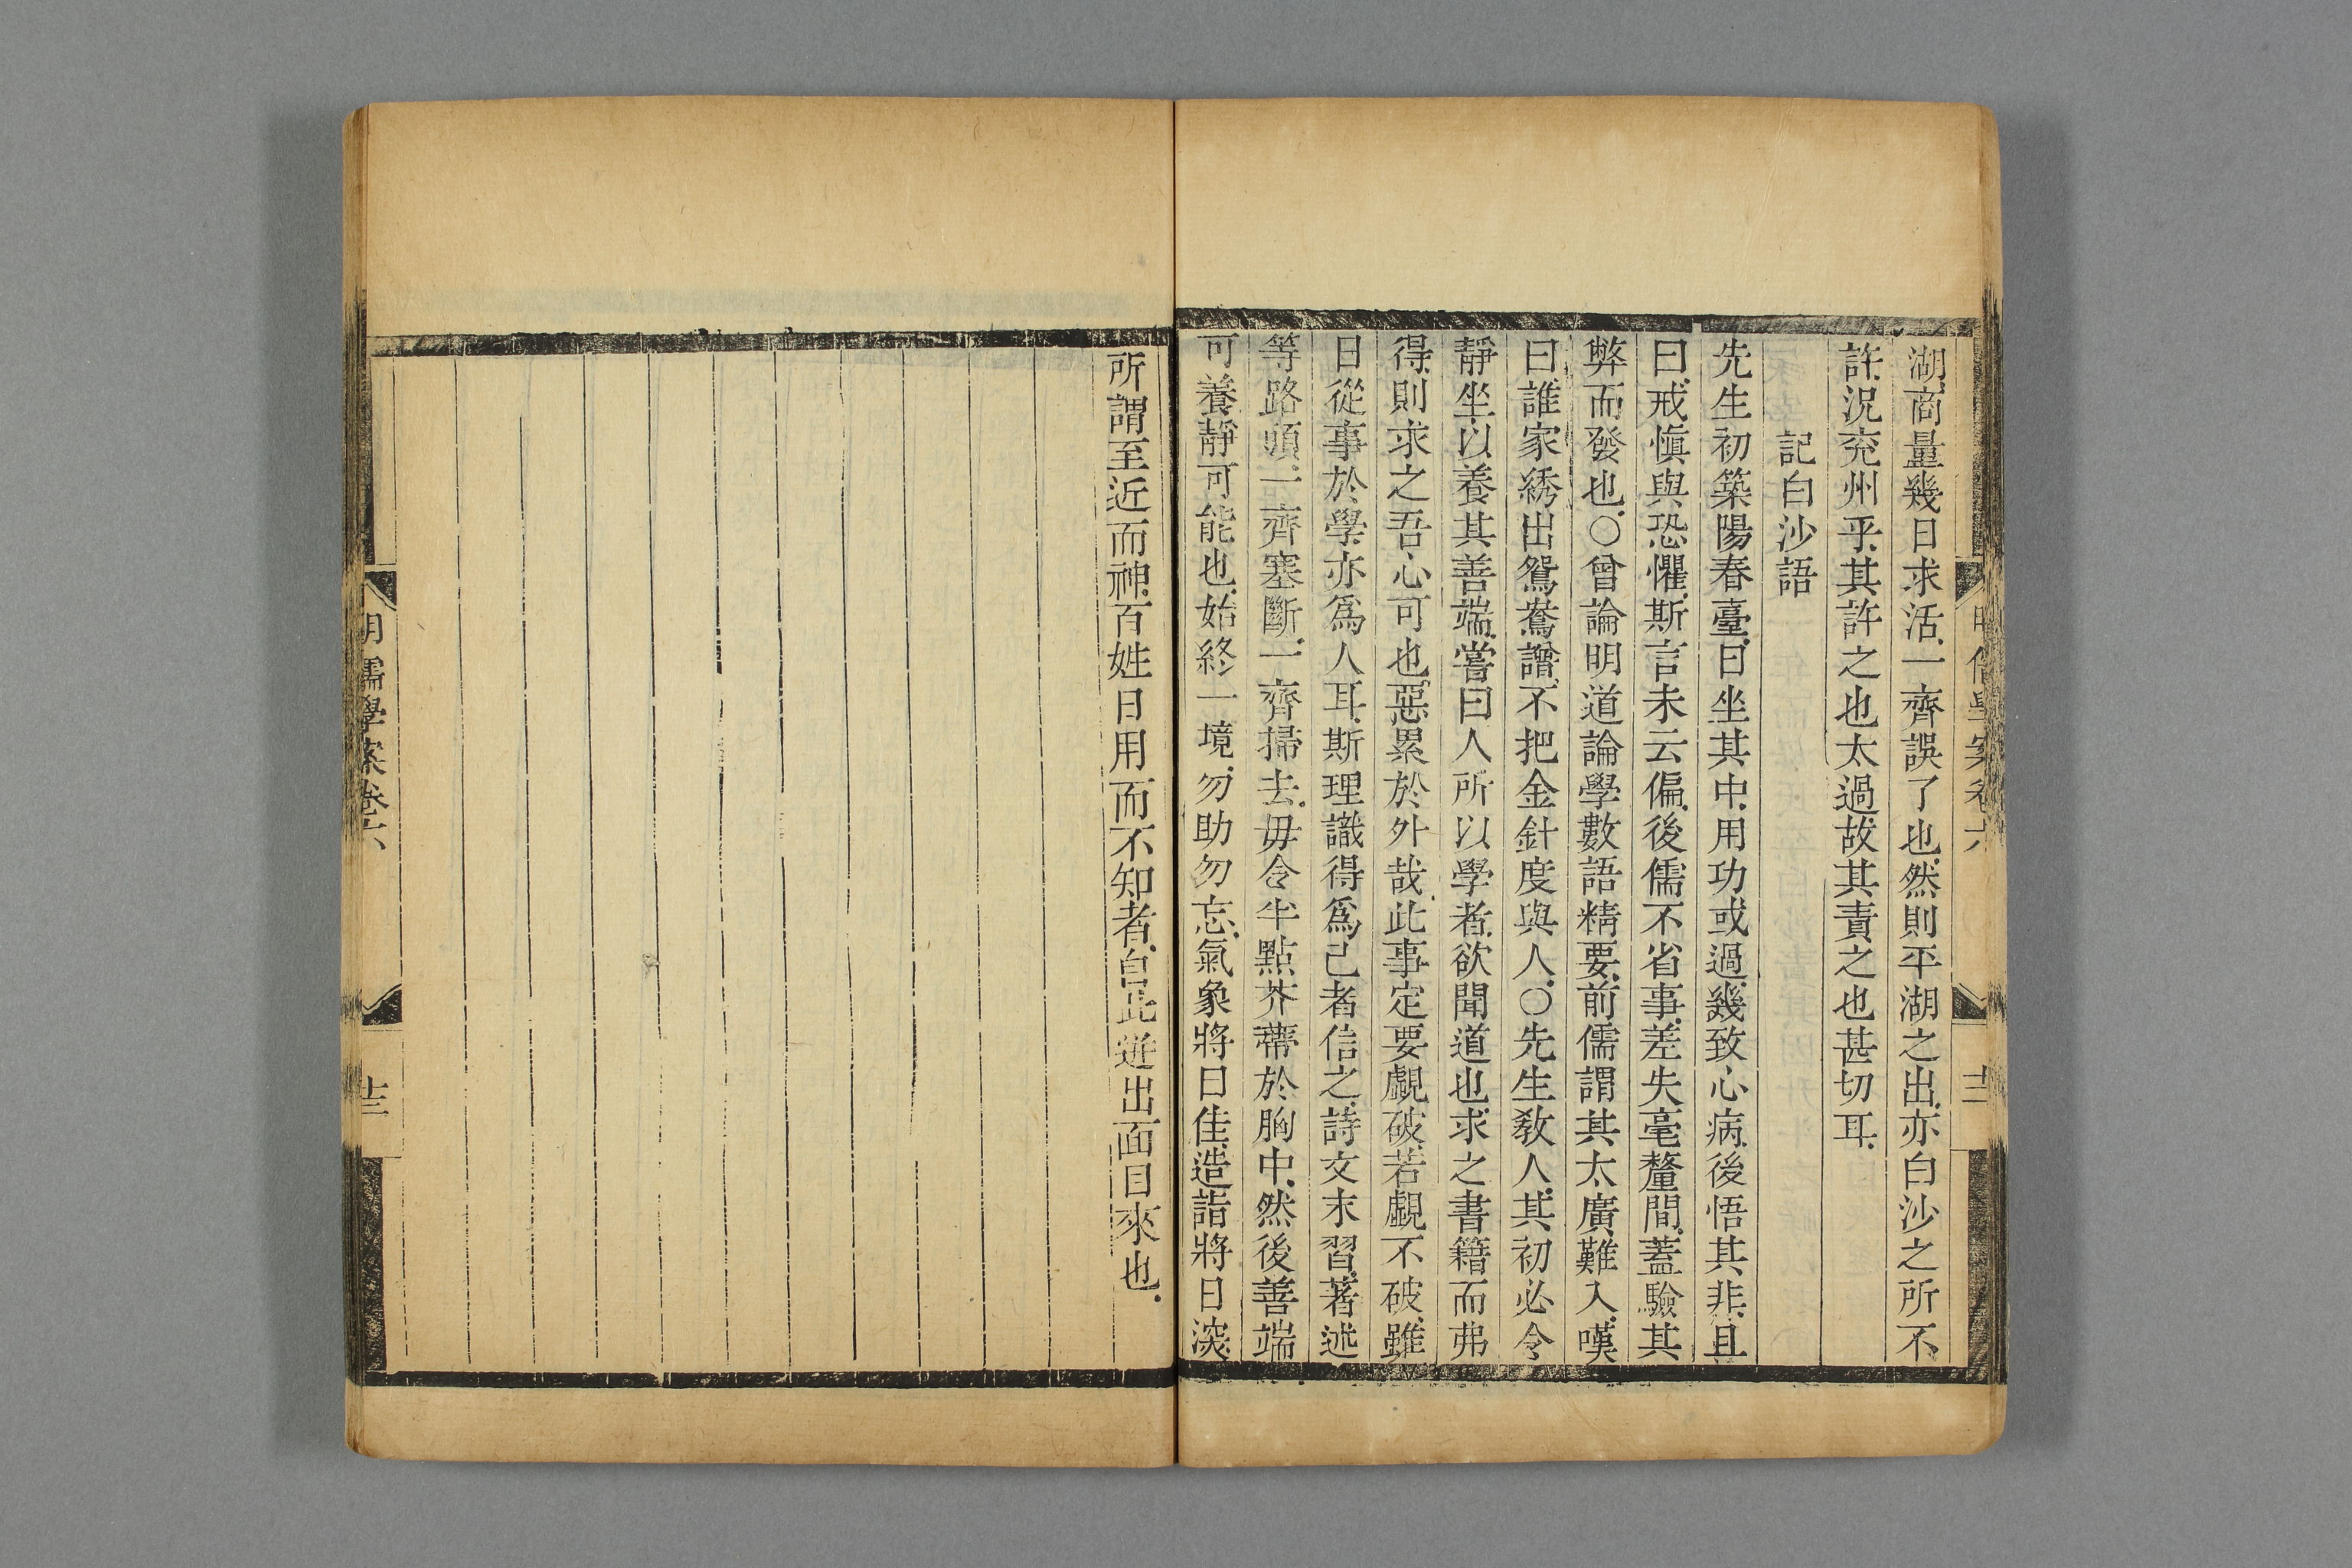 明儒學案卷六
十二
湖商量幾日求活一齊誤了也然則平湖之出亦白沙之所不
許況兖州乎其許之也太過故其責之也甚切耳
記白沙語
先生初築陽春臺日坐其中用功或過幾致心病後悟其非且
曰戒愼與恐懼斯言未云偏後儒不省事差失毫釐間蓋驗其
弊而發也○曾論明道論學數語精要前儒謂其太廣難入嘆
曰誰家綉出鴛鴦譜不把金針度與人○先生敎人其初必令
靜坐以養其善端嘗曰人所以學者欲聞道也求之書籍而弗
得則求之吾心可也惡累於外哉此事定要覷破若覷不破雖
日從事於學亦爲人耳斯理識得爲己者信之詩文末習著述
等路頭一齊塞斷一齊掃去毋令半點芥蔕於胸中然後善端
可養靜可能也始終一境勿助勿忘氣象將日佳造詣將日深
所謂至近而神百姓日用而不知者自此迸出面目來也
明儒學案卷六
十三